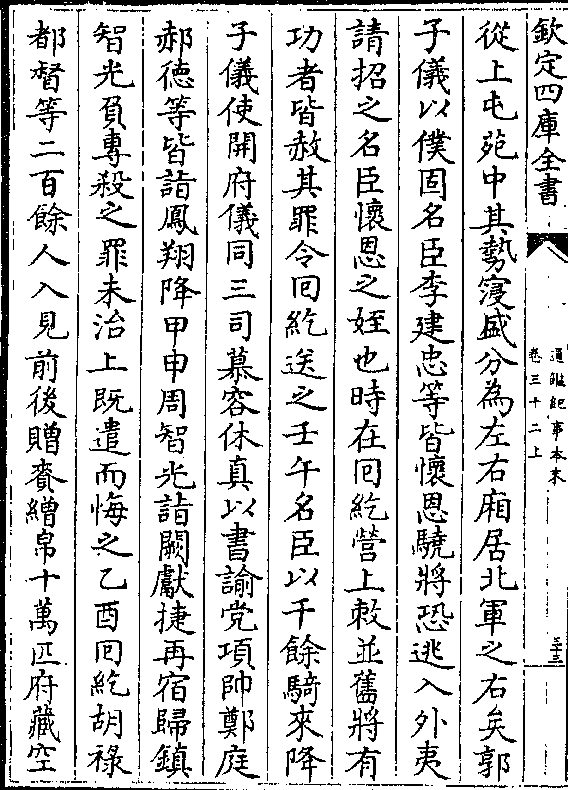 欽定四庫全書
通鑑紀事本末
卷三十二上
三十三
從上屯苑中其勢寖盛分為左右廂居北軍之右矣郭
子儀以僕固名臣李建忠等皆懷恩驍將恐逃入外夷
請招之名臣懷恩之姪也時在回紇營上敕並舊將有
功者皆赦其罪令回紇送之壬午名臣以千餘騎來降
子儀使開府儀同三司慕容休真以書諭党項帥鄭庭
郝徳等皆詣鳳翔降甲申周智光詣闕獻捷再宿歸鎮
智光負專殺之罪未治上既遣而悔之乙酉回紇胡祿
都督等二百餘人入見前後贈賚繒帛十萬匹府藏空